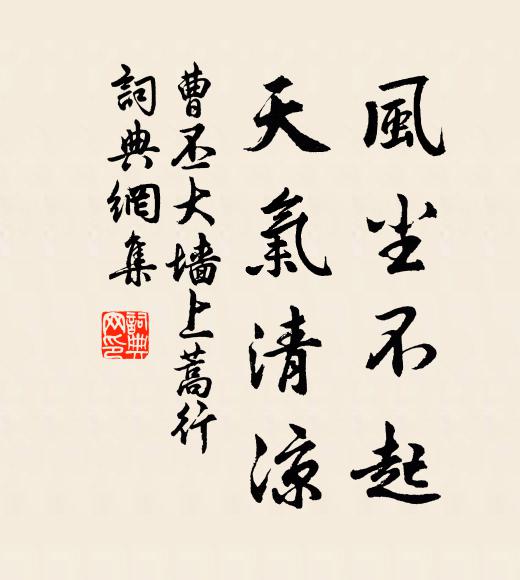 風尘不起
天氣清凉
曹丕大墙上蒿行
詞典網集
詞典
网印